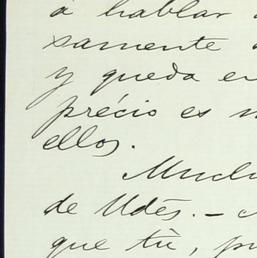 á hablar
samente
y queda en
précio es
ellos.
de Udés. —
que tù,